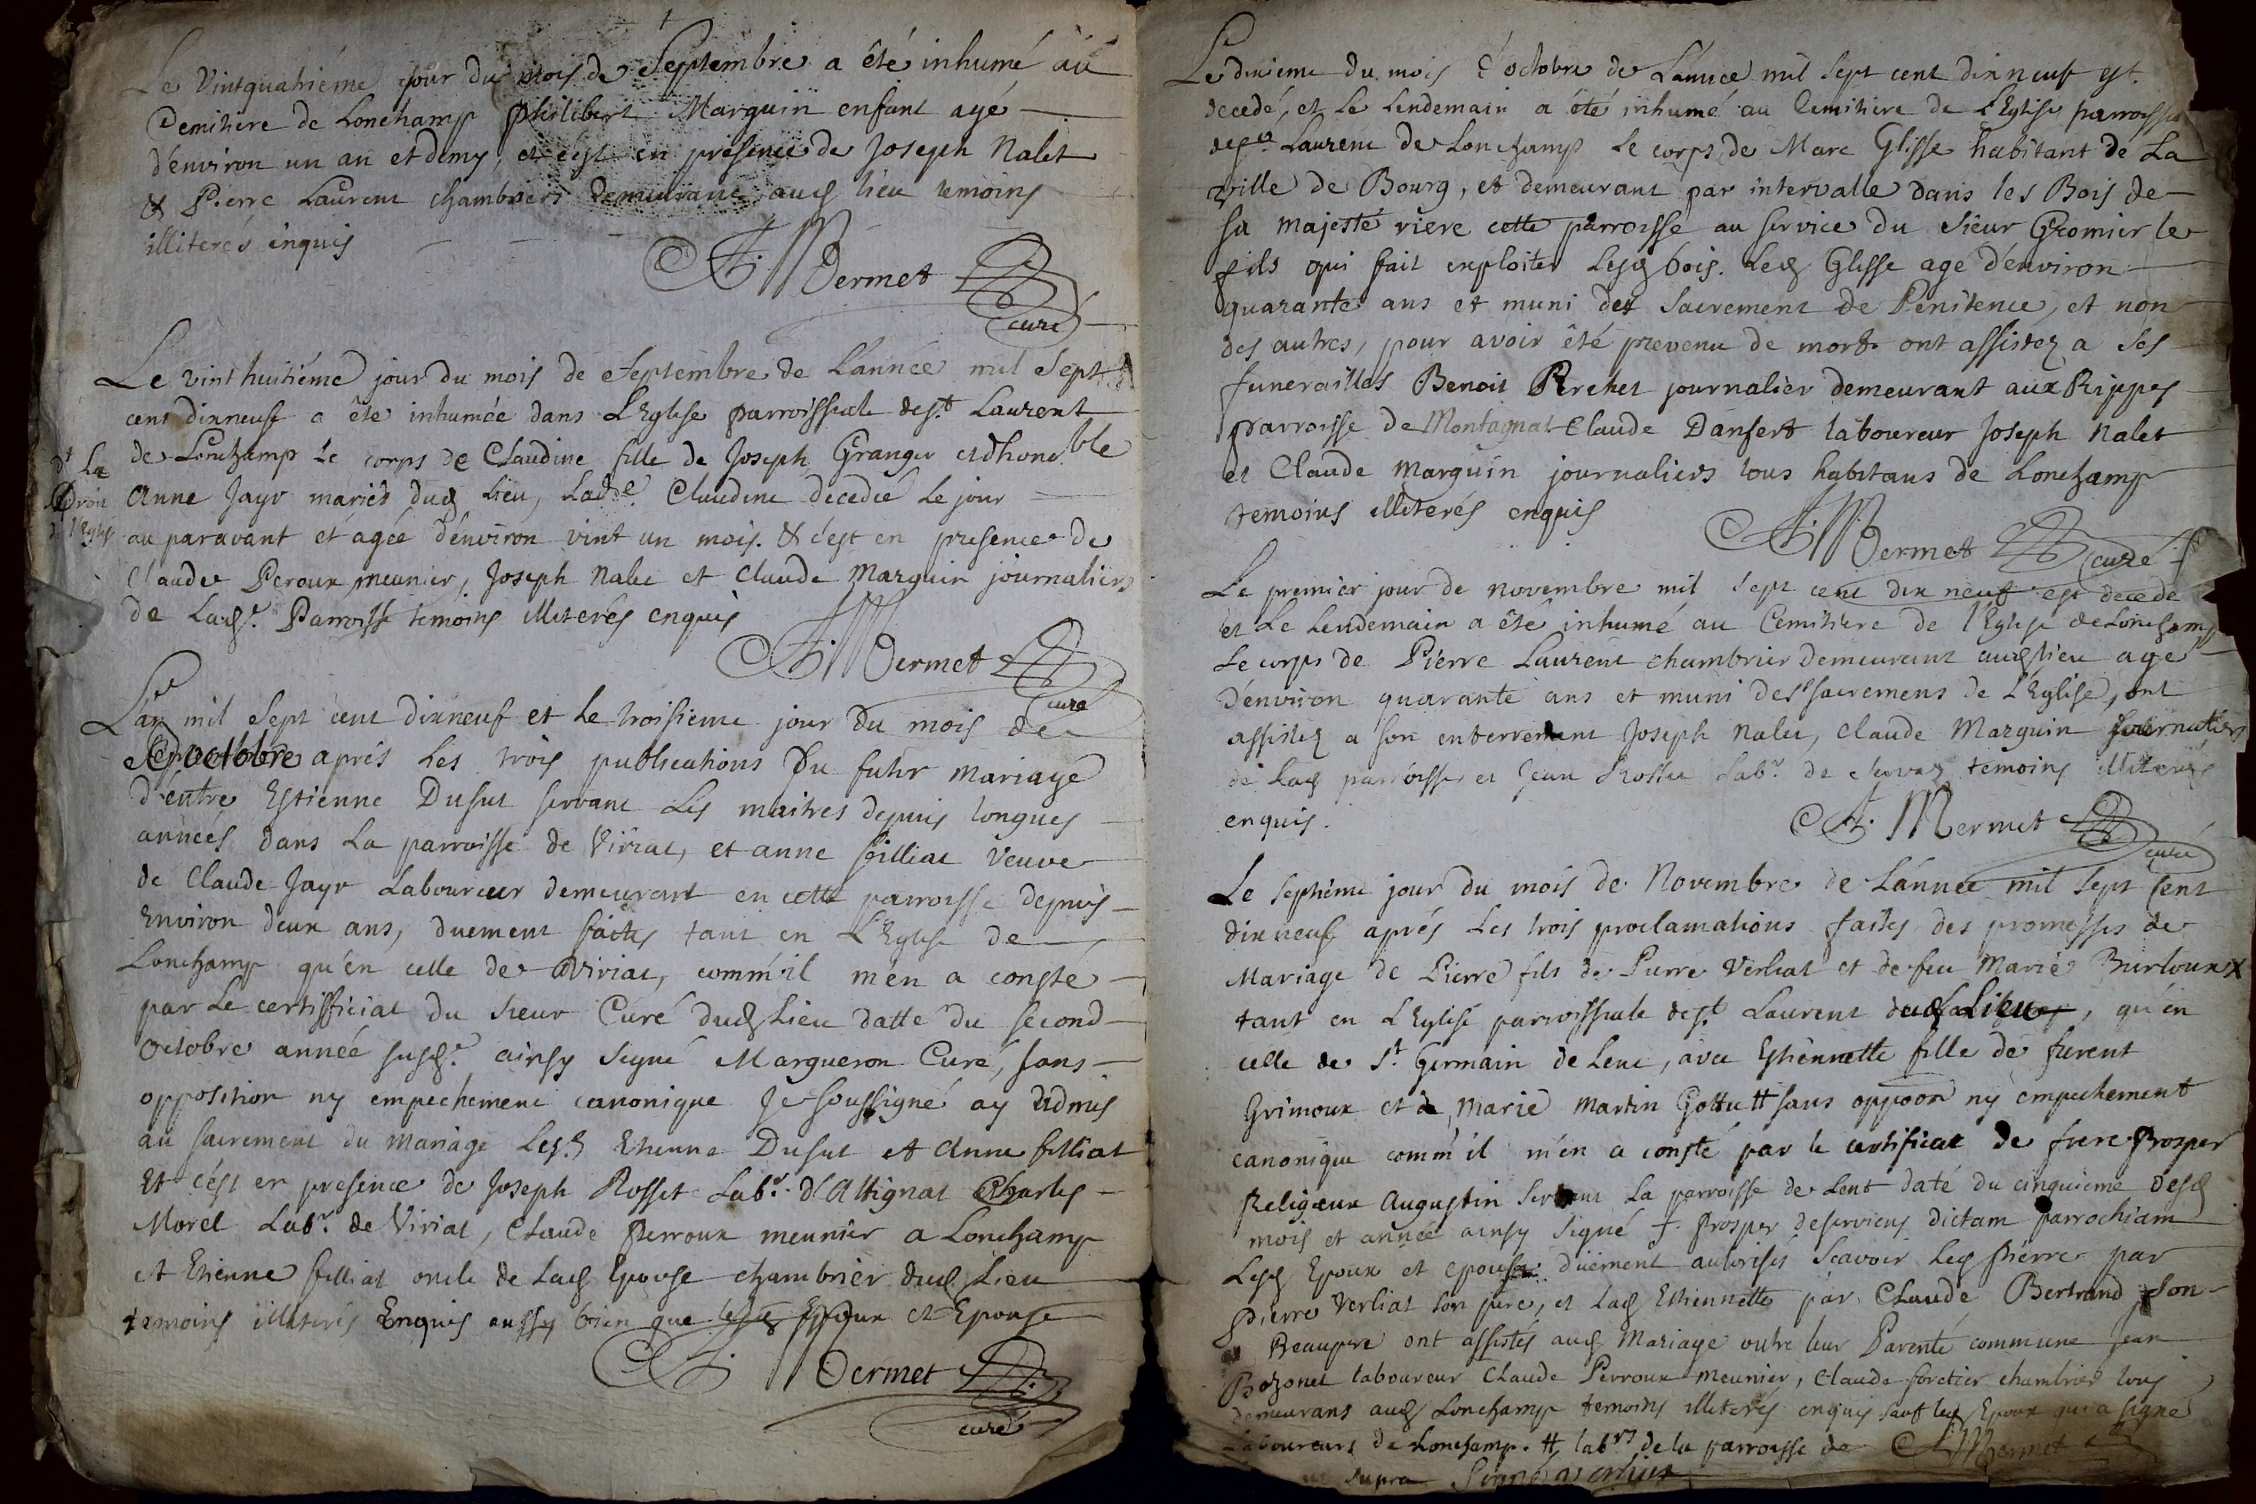 Le Vintquatriéme jour du mois de Septembre a êté inhumé au
Cemitiere de Lonchamp Philibert Marguin enfant agé
d'environ un an et demy, et c'est en présence de Joseph Nalet
& Pierre Laurent chambriers demeurants aud lieu temoins
illiterés enquis
Mermet
curé
Le vint huitiéme jour du mois de Septembre de L'année mil Sept
cent dixneuf a êté inhumée dans L'Eglise parroissiale de St Laurent
de Lonchamp Le corps de Claudine fille de Joseph Granger et d'honorble
Anne Jayr mariés dud Lieu, Ladte Claudine decedée Le jour
au paravant et ágée d'environ vint un mois. & c'est en presence de
Claude Peroux meunier, Joseph Nalet et Claude Marguin journaliers
de Lade Parroisse temoins illiterés enquis
Dt La
Droit
de l'Eglise
Mermet
curé
L'an mil Sept cent dixneuf et Le troisieme jour du mois de
octobre aprés Les trois publications Du futur mariage
d'entre Estienne Dufut servant Les maitres depuis longues
années dans La parroisse de Viriat, et anne filliat veuve
de Claude Jayr Laboureur demeurant en cette parroisse depuis
Environ deux ans, duement faites tant en L'Eglise de
Lonchamp qu'en celle de Viriat, comm'il m'en a consté
par Le certifficiat du Sieur Curé dud Lieu datté du second
Octobre année susde ainsy signé Margueron Curé, sans
opposition ny empechement canonique Je soussigné ay admis
au sacrement du mariage Lesd Etienne Dufut et Anne filliat
Et c'est en presence de Joseph Rosset Labr d'Attignat Charles
Morel Labr de Viriat, Claude Perroux meunier a Lonchamp
et Etienne filliat oncle de Lad Epouse chambrier dud Lieu
temoins illiterés Enquis aussy bien que lesd Epoux et Epouse
Mermet
curé
Le dixieme du mois d'octobre de L'année mil sept cent dixneuf est
decedé, et Le Lendemain a êté inhumé au Cemitiere de L'Eglise parroissi
de St Laurent de Lonchamp Le corps de Marc Glisse habitant de La
ville de Bourg, et demeurant par intervalle dans les Bois de
sa majesté riere cette parroisse au service du Sieur Gromier le
fils qui fait exploiter Lesd bois. Led Glisse agé d'environ
quarante ans et muni des Sacrement de Penitence, et non
des autres, pour avoir êté prevenu de mort ont assistez a ses
funerailles Benoit journalier demeurant aux Rippes
parroisse de Montagnat Claude Danfert laboureur Joseph Nalet
et Claude Marguin journaliers tous habitans de Lonchamp
temoins illiterés enquis
Mermet curé
Le premier jour de novembre mil sept cent dix neuf est decedé
et Le Lendemain a êté inhumé au Cemitiere de l'Eglise de Lonchamp
Le corps de Pierre Laurent chambrier demeurant aud lieu agé
d'environ quarante ans et muni des sacremens de L'Eglise, ont
assistez a son enterrement Joseph Nalet, Claude Marguin Journaliers
de Lad parroisse et Jean Rosset Labr de Servaz temoins illiterés
enquis.
Mermet
curé
Le septiéme jour du mois de Novembre de L'année mil sept cent
dixneuf aprés Les trois proclamations faites des promesses de
Mariage de Pierre fils de Pierre Verliat et de feu Marie Burtoux
tant en L'Eglise parroissiale de St Laurent dud Lieu, qu'en
celle de St Germain de Lent, avec Estiennette fille de furent
Grimoux et de Marie Martin Gottu ## sans oppoon ny empechement
canonique comm'il m'en a consté par le certificat de frere Prosper
Religieux Augustin servant La parroisse de Lent daté du cinquieme desd
mois et année ainsy signé f. Prosper deserviens dictam parrochiam
Lesd Epoux et epouse duement autorisés Scavoir Led Pierre par
Pierre Verliat son pere, et Lad Estiennette par Claude Bertrand son
Beaupere ont assistés aud Mariage outre leur Parenté commune Jean
Bozonet laboureur Claude Perroux meunier, Claude foretier chambrier tous
demeurans aud Lonchamp temoins illiterés enquis sauf led Epoux qui a signé
Laboureurs de Lonchamp. ## labrs de la parroisse de Mermet
supra Signé Verliat